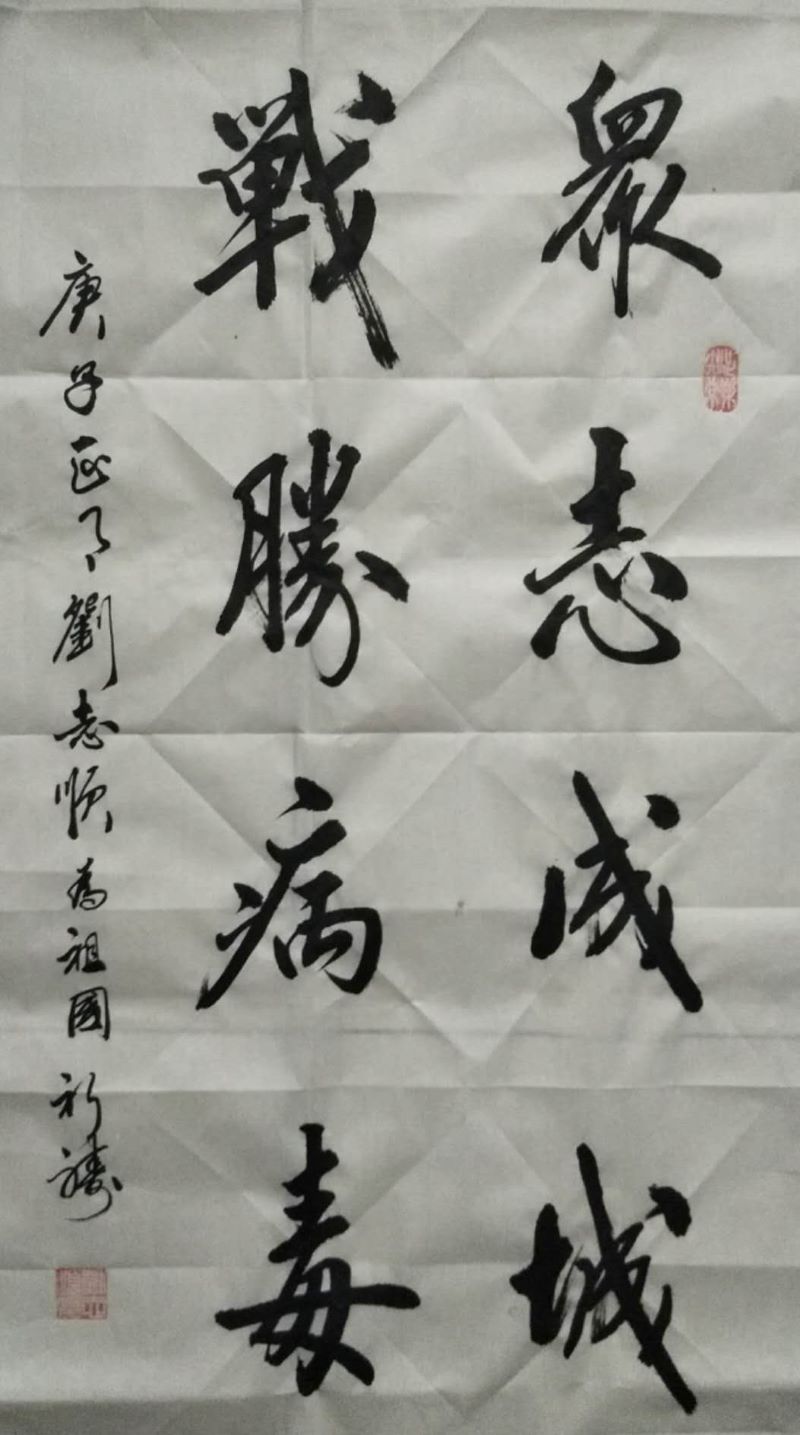 眾志成城
戰勝病毒
庚子正月劉志順為祖國祈禱